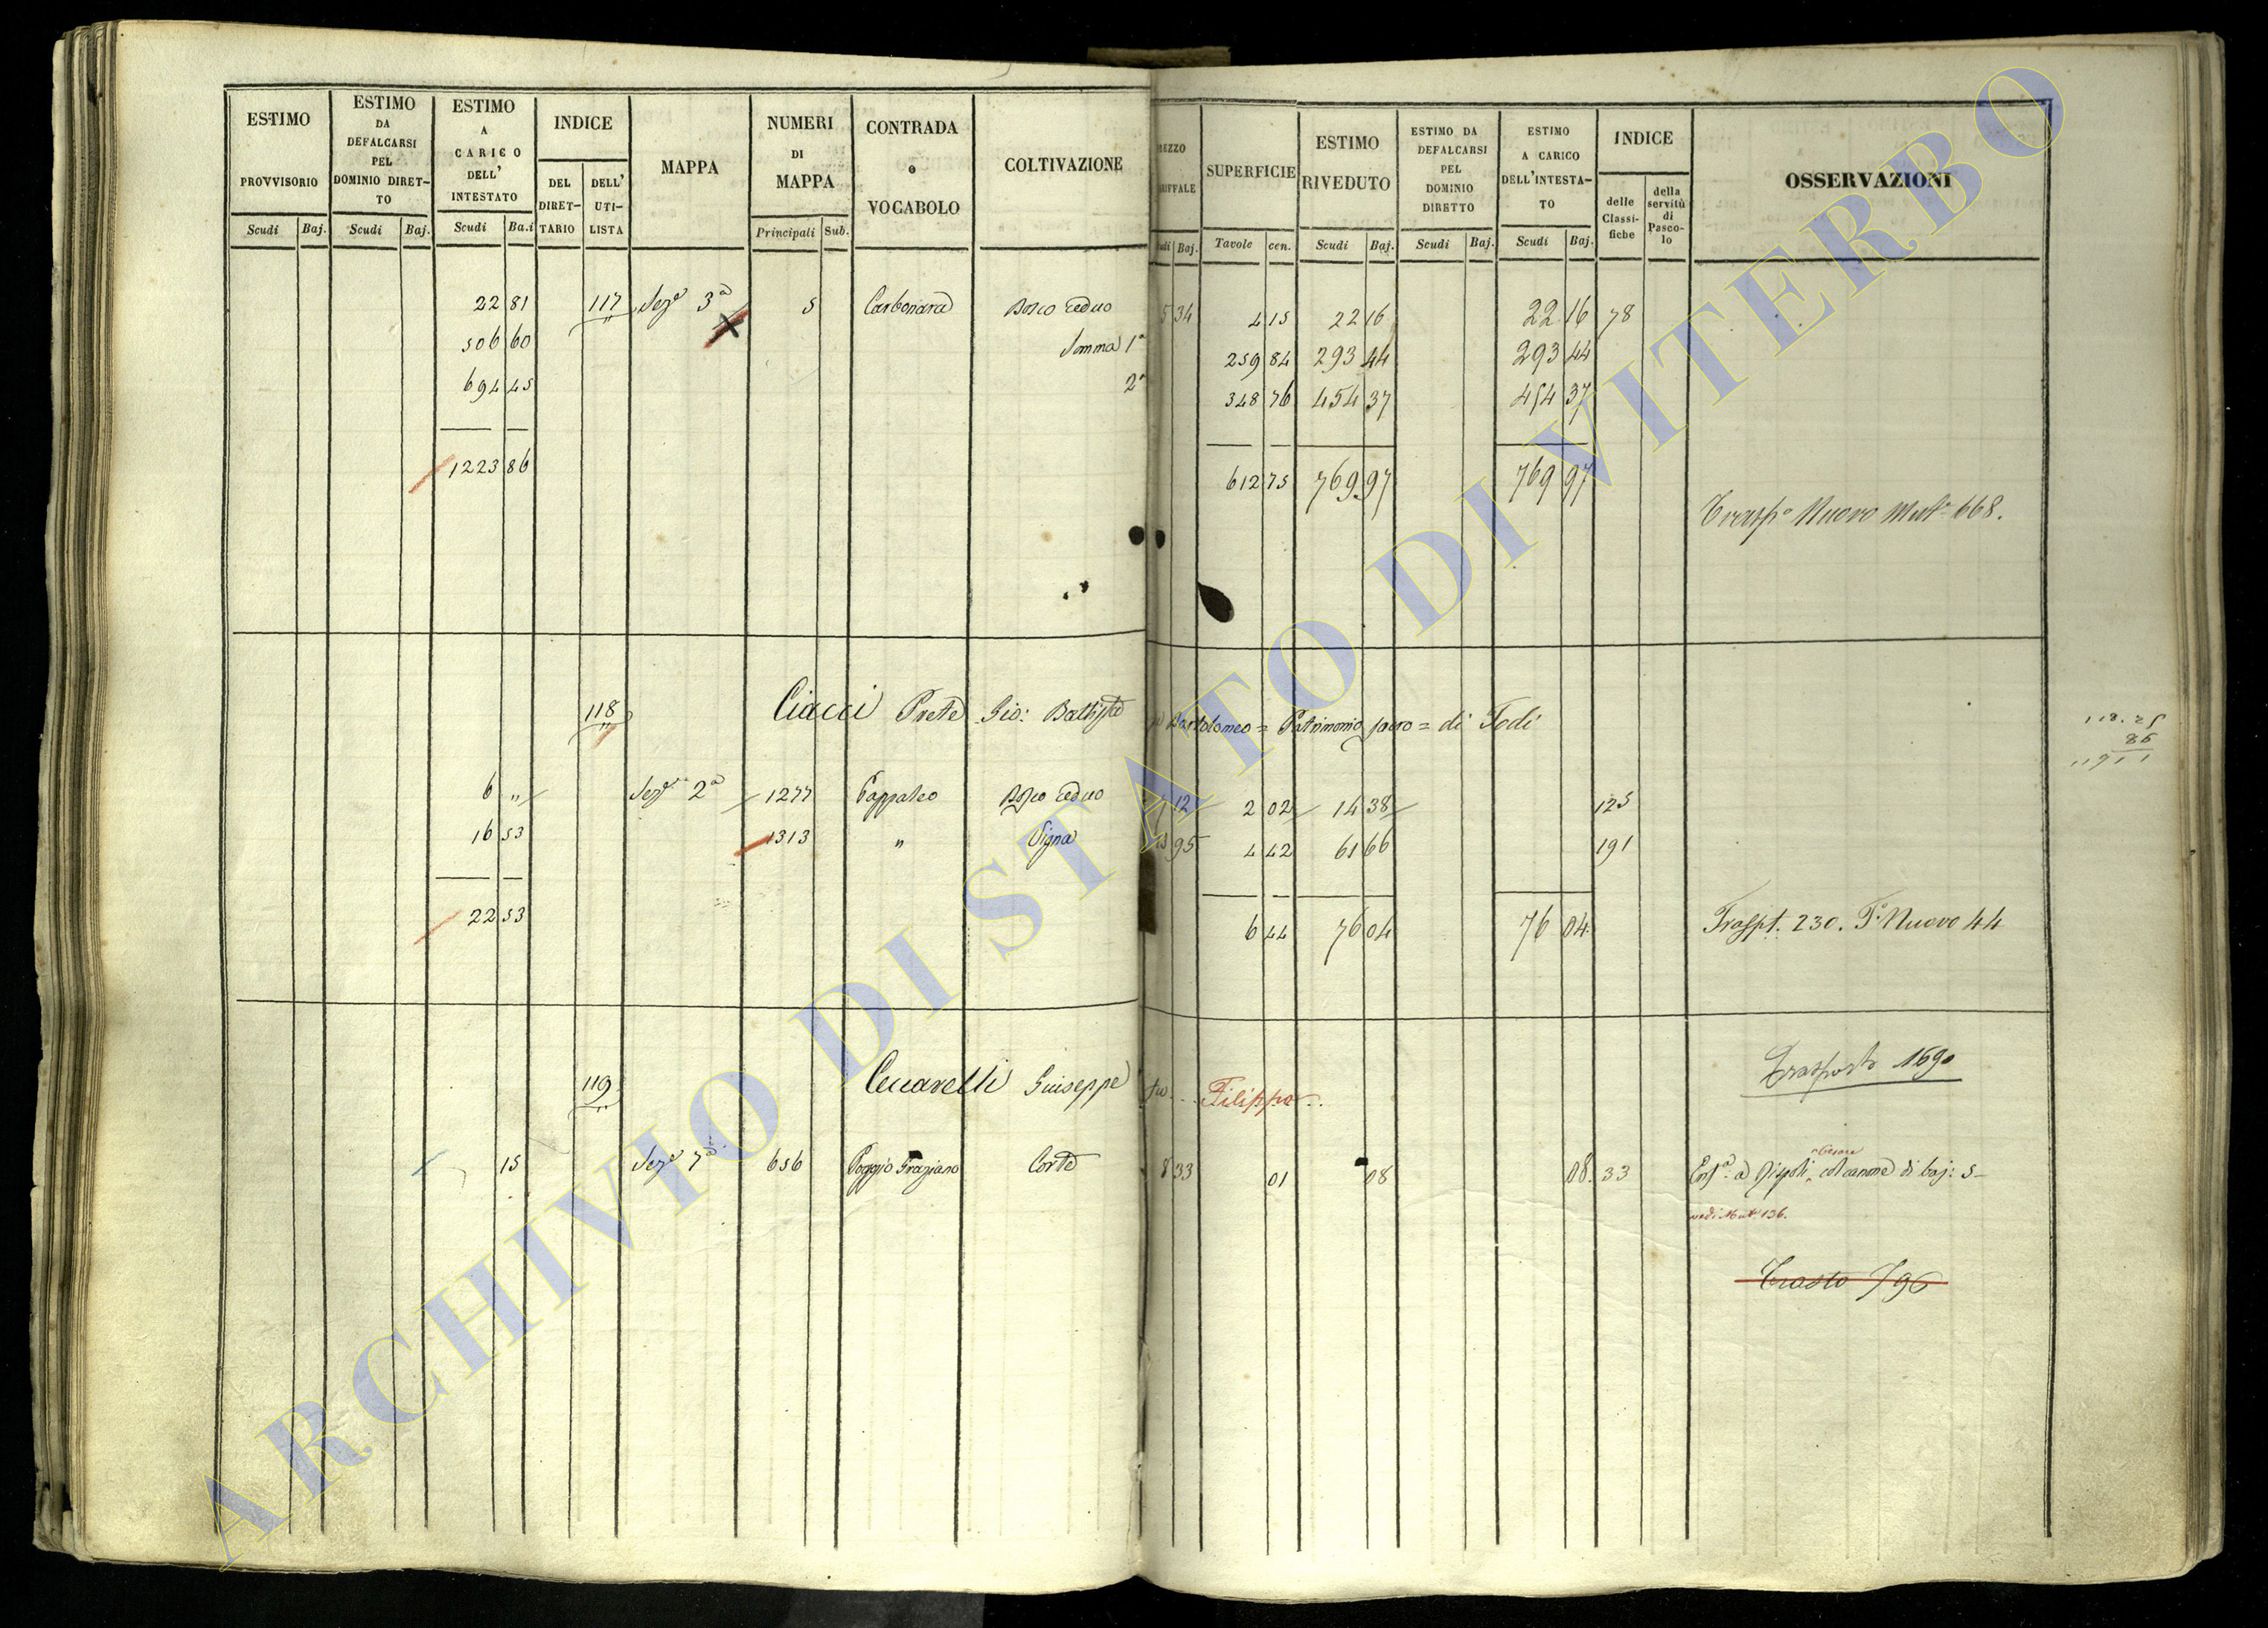 ESTIMO PROVVISORIO Scudi Baj.
ESTIMO DA DEFALCARSI PEL DOMINIO DIRET-TO Scudi Baj.
ESTIMO A CARICO DELL' INTESTATO Scudi Ba.i
INDICE DEL DIRET-TARIO DELL' UTI-LISTA
MAPPA
NUMERI DI MAPPA Principali Sub.
CONTRADA o VOCABOLO
COLTIVAZIONE
EZZO UFFALE di Baj.
SUPERFICIE Tavole cen.
ESTIMO RIVEDUTO Scudi Baj.
ESTIMO DA DEFALCARSI PEL DOMINIO DIRETTO Scudi Baj.
ESTIMO A CARICO DELL'INTESTA-TO Scudi Baj.
INDICE delle Classi-fiche della servitù di Pasco-lo
OSSERVAZIONI
22 81 117 Sez.e 3a 5 Carbonara Bosco Ceduo 5 34 4 15 22 16 22 16 78
506 60 Somma 1a 259 84 293 44 293 44
694 45 2a 348 76 454 37 454 37
1223 86 612 75 769 97 769 97
Trasp.o Nuovo Mut.e 668.
118 Ciacci Prete Gio: Battista Bartolomeo = Patrimonio sacro = di Todi
6 " Sez.e 2a 1277 Pappaleo Bosco Ceduo 7 12 2 02 14 38 125
16 53 1313 " Vigna 13 95 4 42 61 66 191
22 53 6 44 76 04 76 04 Traspt. 230. P. Nuovo 44
119 Ceccarelli Giuseppe fu... Filippo..
Trasporto 1690
15 Sez.e 7a 656 Poggio Graziano Corte 8 33 01 08 08 33 Enf.a a Dispoli Cesare col canone di baj: 5
vedi Mut. 136.
Trasto 796
118.25
86
1191 1
ARCHIVIO DI STATO DI VITERBO